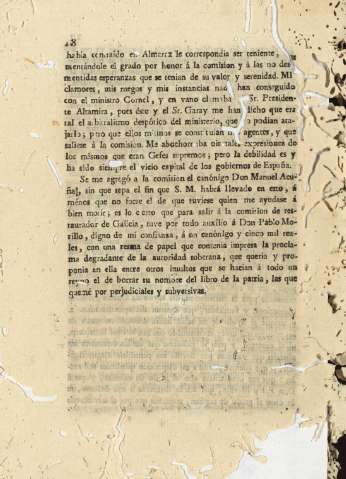 28
había tentado en Almeria le correspondia ser teniente,
mentándole el grado por honor á la comision y á las no des
mentidas esperanzas que se tenian de su valor y serenidad. Mi
clamores, mis ruegos y mis instancias nad han conseguido
con el ministro Cornel, y en vano clamaba Sr. Presiden-
te Altamira, pues éste y el Sr. Garay me han dicho que era
tal el arbitralismo despótico del ministerio, que o podian ata-
jarlo; pero que ellos mismos se constituian agentes, y que
saliese á la comision. Me abochornaba oir tales expresiones de
los mismos que eran Gefes supremos; pero la debilidad es y
ha sido siempre el vicio capital de los gobiernos de España.
Se me agregó á la comision el canónigo Don Manuel Acu-
ña, sin que sepa el fin que S. M. habrá llevado en esto, á
ménos que no fuese el de que tuviese quien me ayudase á
bien morir; es lo cierto que para salir á la comision de res-
taurador de Galicia, tuve por todo auxilio á Don Pablo Mo-
rillo, digno de mi confianza, á un canónigo y cinco mil rea-
les, con una resma de papel que contenia impresa la procla-
ma degradante de la autoridad soberana, que queria y pro-
ponia en ella entre otros insultos que se hacian á todo un
reyno el de borrar su nombre del libro de la patria, las que
quemé por perjudiciales y subversivas.